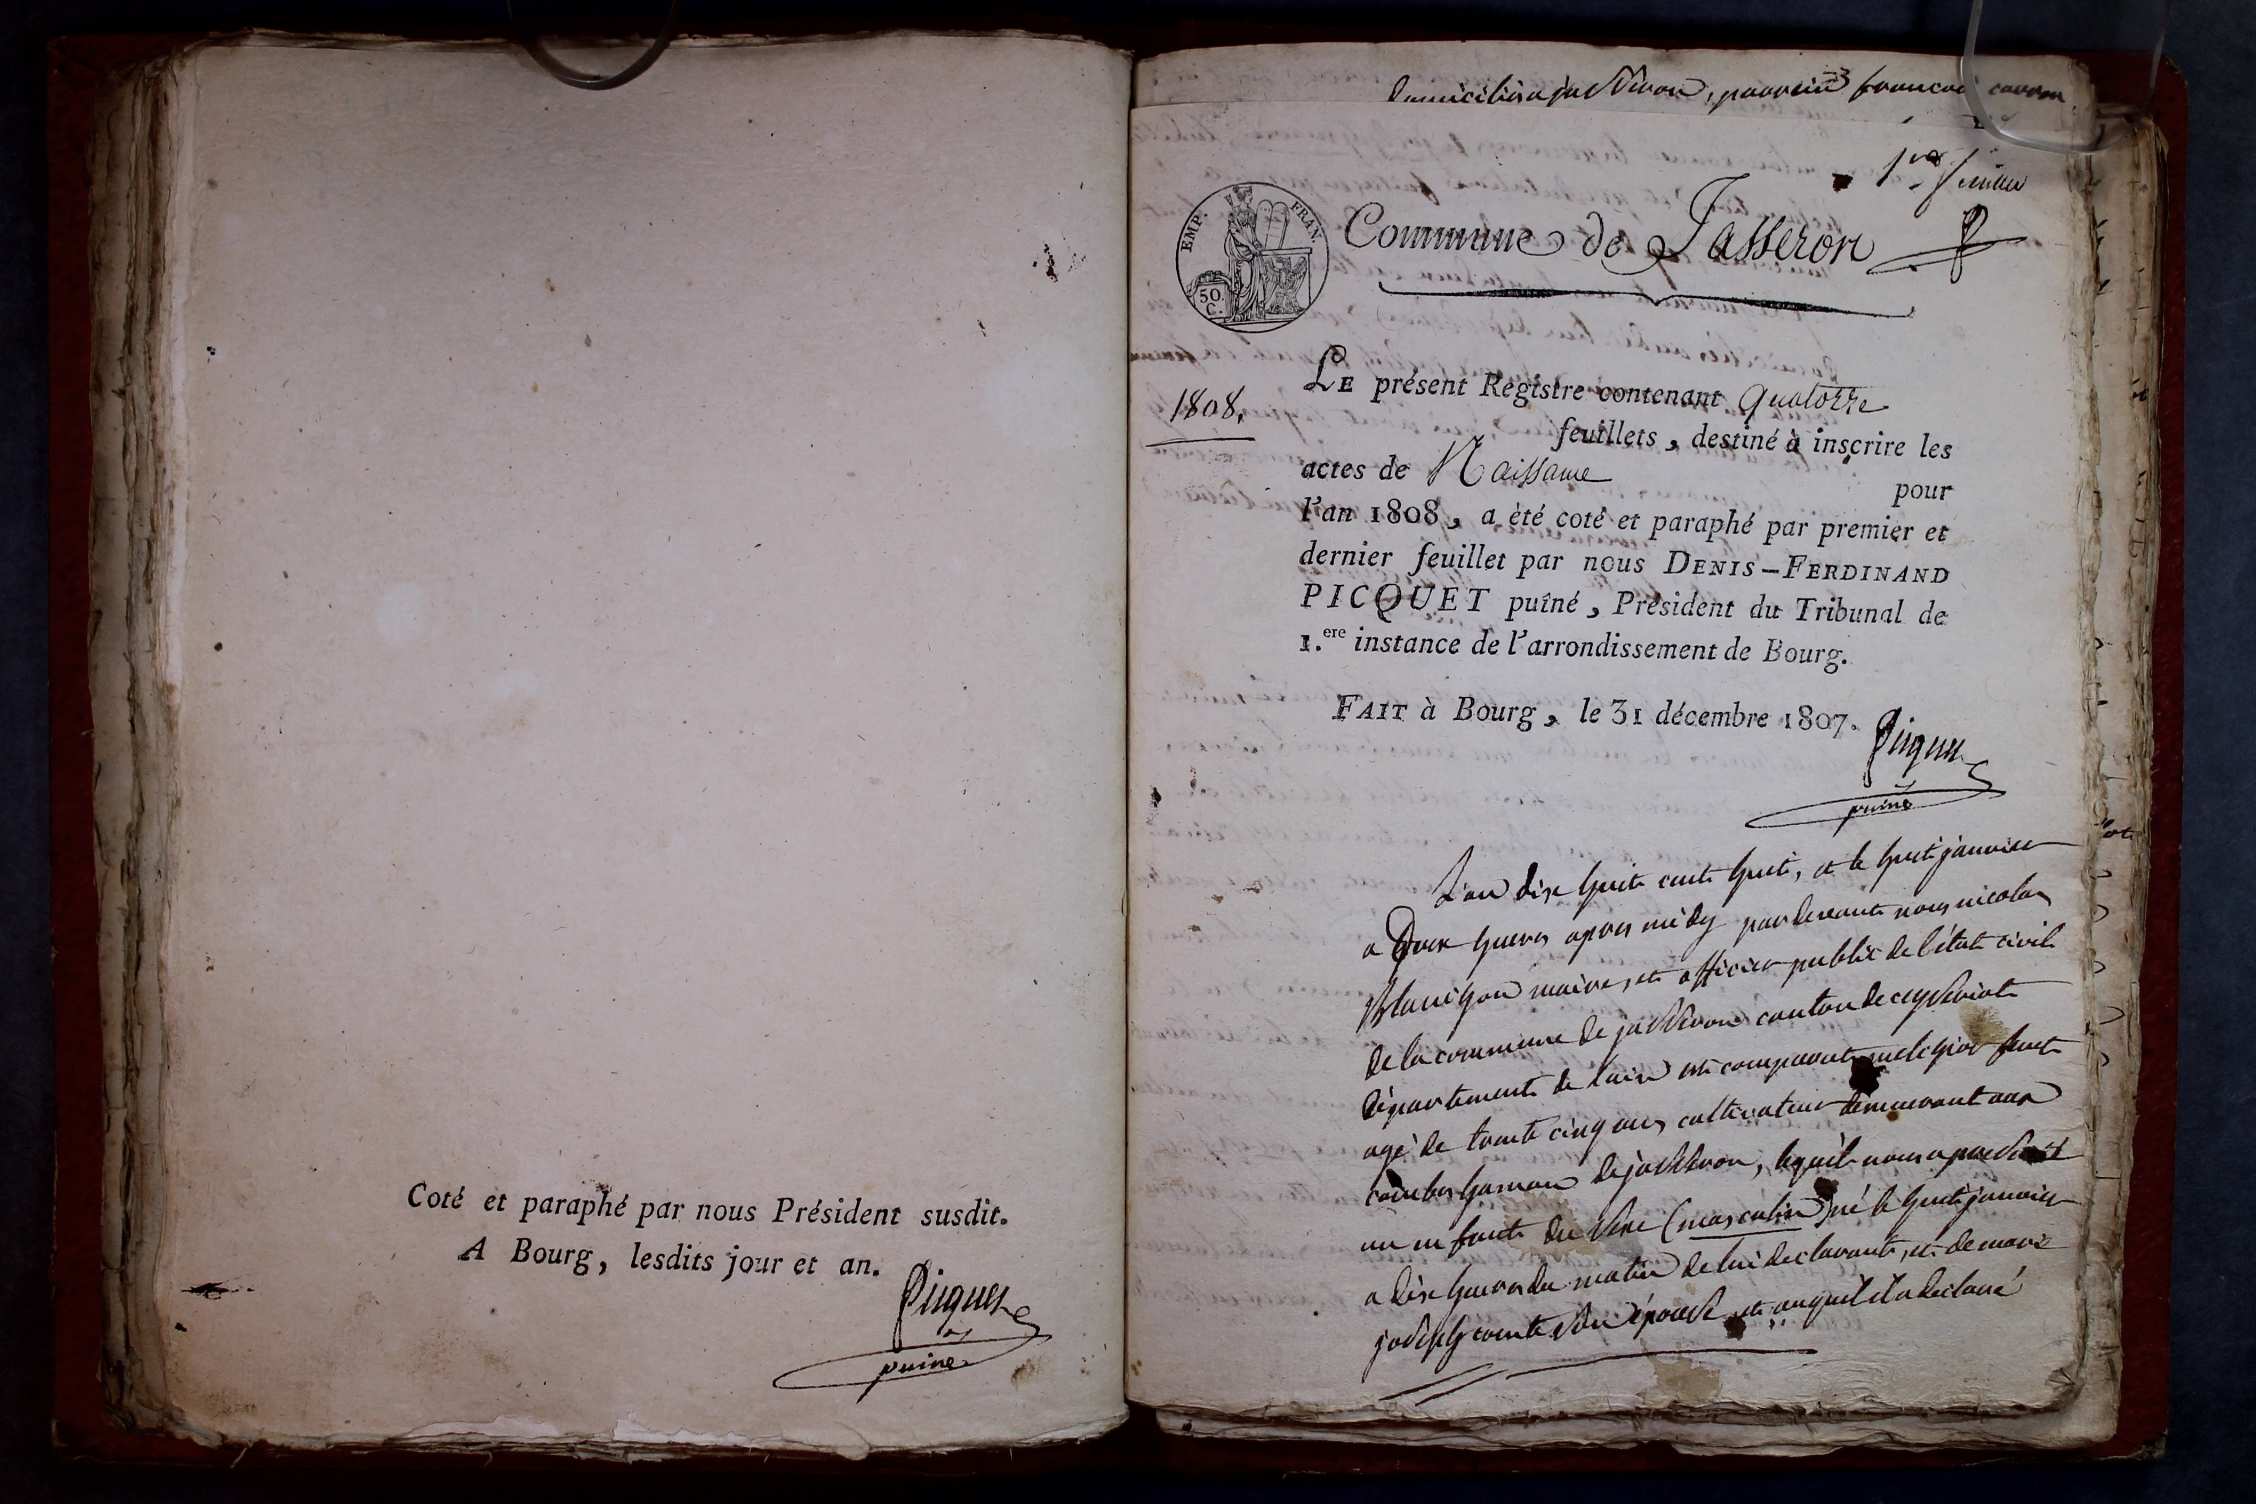 Coté et paraphé par nous Président susdit.
A Bourg, lesdits jour et an.
Picquet
puiné
domicilié a jasseron, françois carron
1er feuillet
EMP. FRAN.
50. C.
Commune de Jasseron
1808.
LE présent Registre contenant quatorze
feuillets, destiné à inscrire les
actes de Naissance pour
l'an 1808, a èté coté et paraphé par premier et
dernier feuillet par nous DENIS-FERDINAND
PICQUET puîné, Président du Tribunal de
1.ere instance de l'arrondissement de Bourg.
FAIT à Bourg, le 31 décembre 1807.
Picquet
puiné
L'an dix huit cent huit, et le huit janvier
a heures apres midy pardevant nous nicolas
maire, et officier public de l'état civil
de la commune de jasseron canton de ceyseriat
département de lain est comparut melchior
agé de trente cinq ans cultivateur demeurant aux
combes hameau de jasseron, lequel nous a presenté
un enfant du sexe (masculin) né le huit janvier
a dix heures du matin de lui declarant, et de marie
joseph comte son épouse et auquel il a declaré